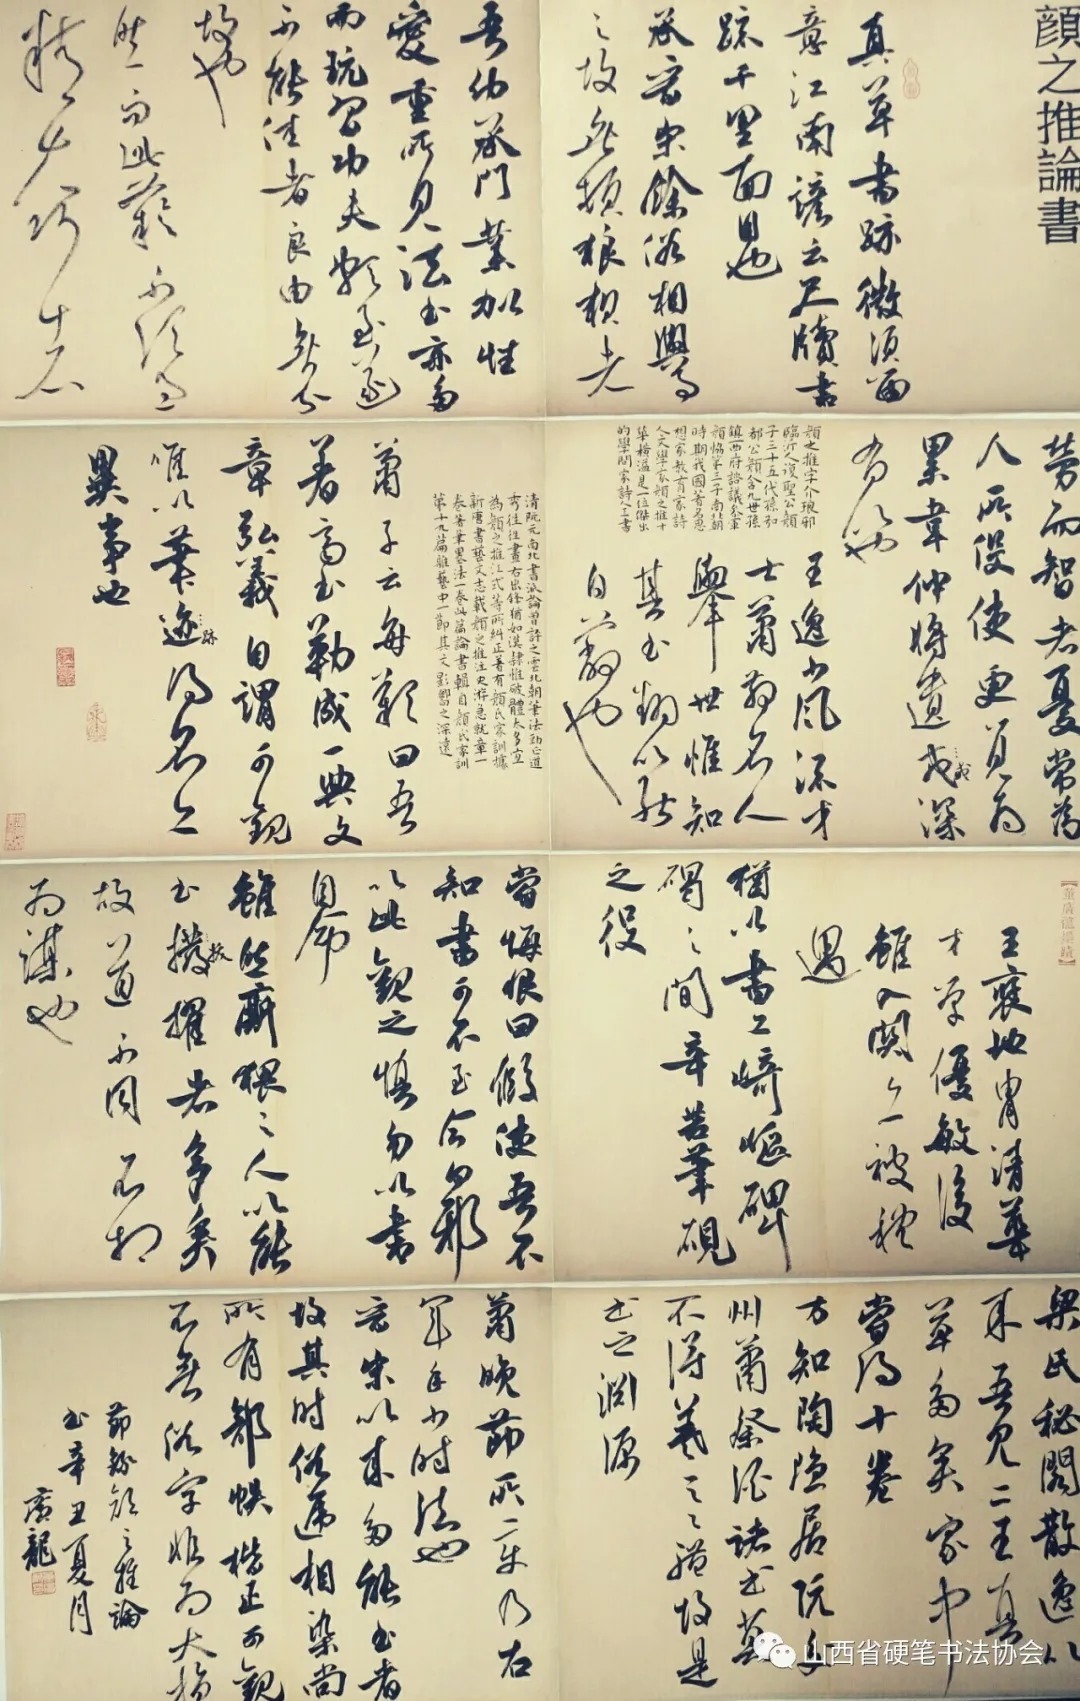 顔之推論書
真草書跡微須留
意江南諺云尺牘書
疏千里面目也
承晉宋餘俗相與事
之故無頓狼狽者
吾幼承門業加性
愛重所見法書亦多
而玩習功夫頗至遂
不能佳者良由無分
故也
然而此藝不須過
精夫巧者
勞而智者憂常為
人所役使更覺為
累韋仲將遺戒深
有以也
顔之推字介琅邪
臨沂人復聖公顔
子三十五代孫
都公顔含九世孫
鎮西府諮議參軍
顔協第三子南北朝
時期我國著名思
想家教育家詩
人文學家顔之推
的學問家詩人
王逸少風流才
士蕭散名人
舉世惟知
其書翻以能
自蔽也
蕭子雲每歎曰吾
著齊書勒成一典文
章弘義自謂可觀
唯以筆迹得名亦
異事也
清阮元南北書派論
新唐書藝文志載顔之推注史游急就章一
卷筆墨法一卷此篇論書輯自顔氏家訓
第十九篇雜藝中一節其文影響之深遠
王褒地胄清華
才學優敏後
雖入關亦被禮
遇
猶以書工崎嶇碑
碣之間辛苦筆硯
之役
嘗悔恨曰假使吾不
知書可不至今日邪
以此觀之慎勿以書
自命
雖然廝猥之人以能
書拔擢者多矣
故道不同不相
為謀也
梁氏秘閣散逸以
來吾見二王真
草多矣家中
嘗得十卷
方知陶隱居阮交
州蕭祭酒諸書莫
不得羲之之體故是
書之淵源
蕭晚節所變乃右
軍年少時法也
晉宋以來多能書者
故其時俗遞相染尚
所有部帙楷正可觀
不無俗字非為大損
節録顔之推論
書辛丑夏月
廣龍
山西省硬笔书法协会